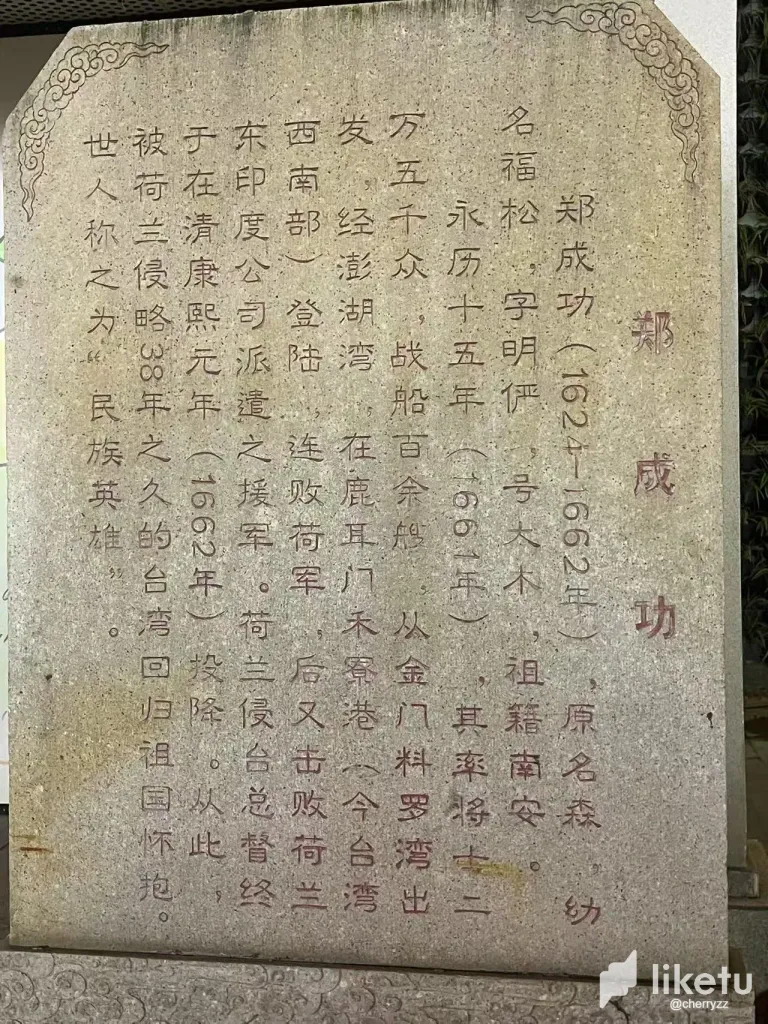 郑成功
郑成功（1624—1662年），原名森，幼
名福松，字明俨，号大木，祖籍南安。
永历十五年（1661年），其率将士二
万五千众，战船百余艘，从金门料罗湾出
发，经澎湖湾，在鹿耳门禾寮港（今台湾
西南部）登陆，连败荷军，后又击败荷兰
东印度公司派遣之援军。荷兰侵台总督终
于在清康熙元年（1662年）投降。从此，
被荷兰侵略38年之久的台湾回归祖国怀抱。
世人称之为“民族英雄”。
liketu
@cherryzz